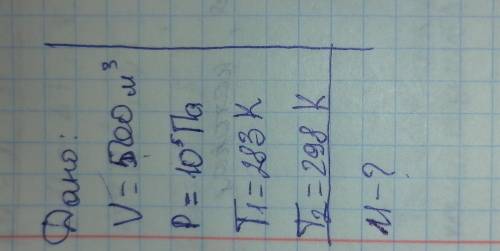 Дано:
V = 5700 м³
P = 10⁵ Па
T₁ = 283 К
T₂ = 298 К
М - ?